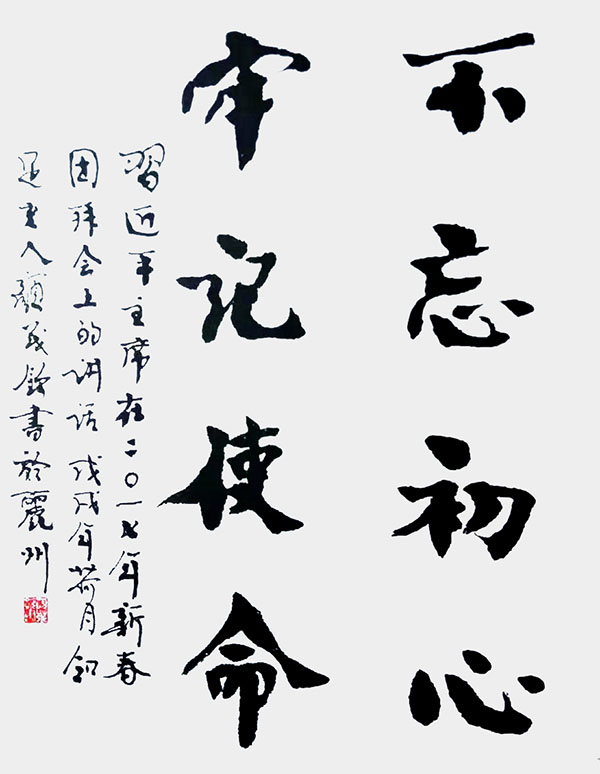 不忘初心
牢记使命
習近平主席在二〇一七年新春
团拜会上的讲话戊戌年荷月
書於麗州